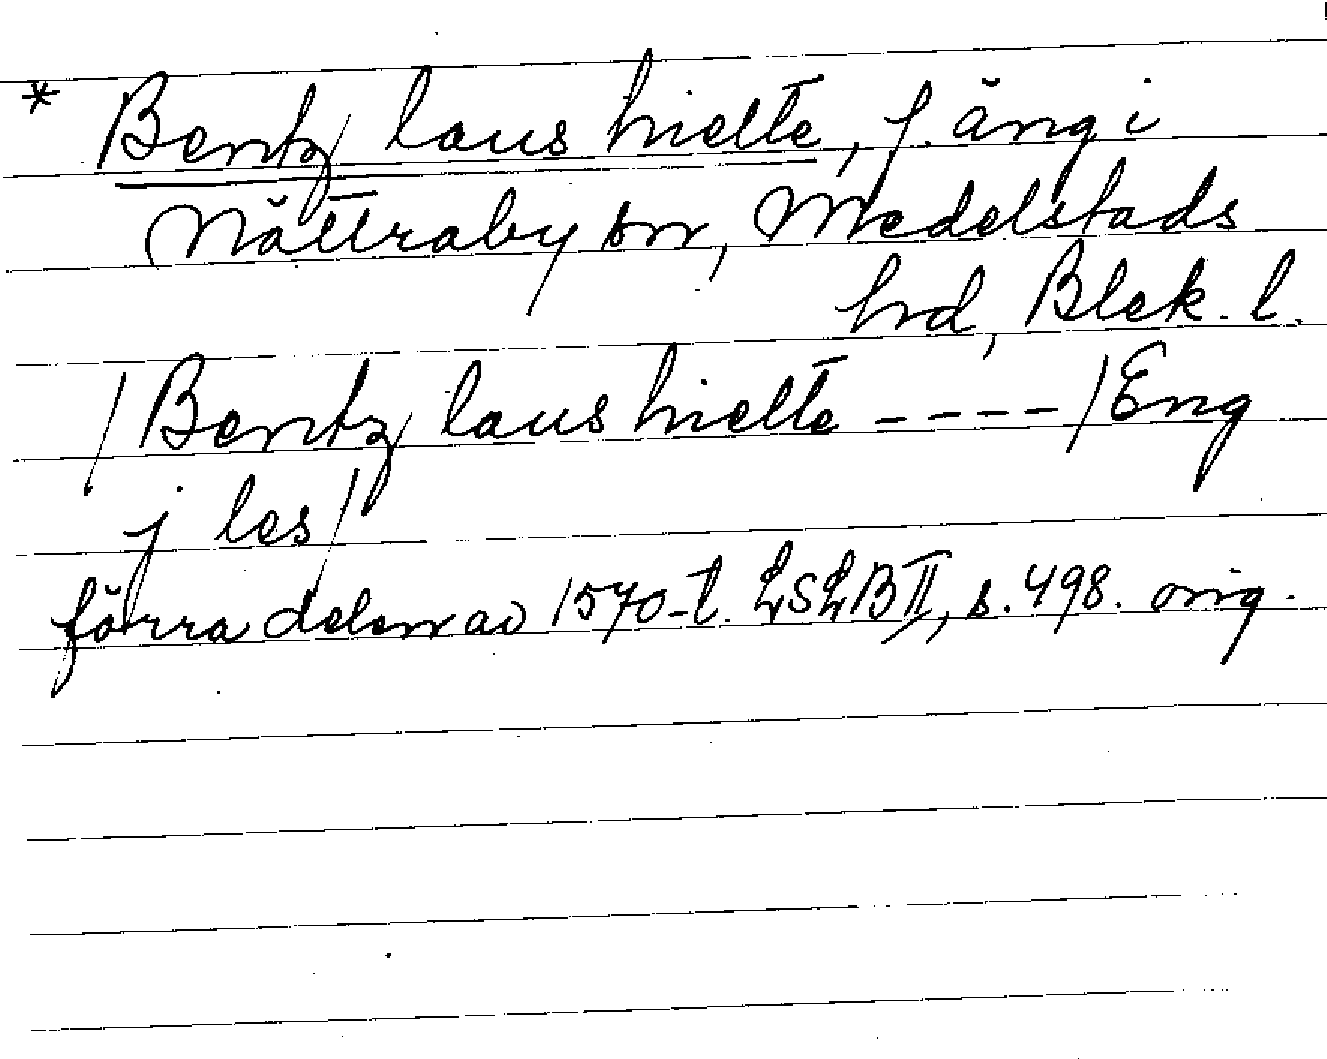 * Bentz laus hielte, f. äng i
Nättraby sn, Medelstads
hrd, Blek. l.
/Bentz laus hielte ---- /Eng
j les/
förra delen av 1570-t. LSLB II, s. 498. orig.